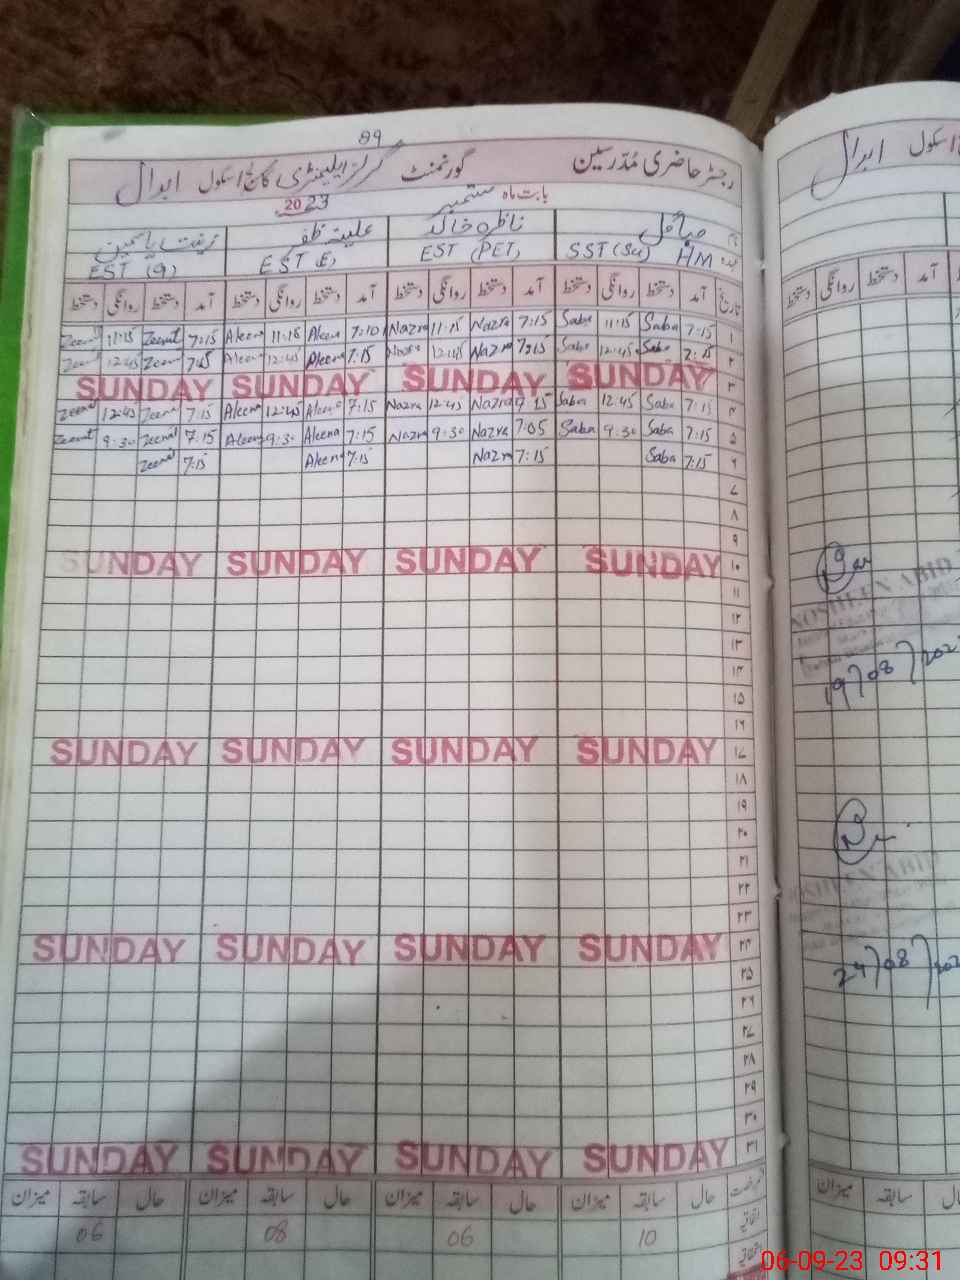 89
رجسٹر حاضری مُدرسین گورنمنٹ گرلز ایلیمنٹری کالج اسکول ابدال
بابت ماہ ستمبر 2023
نام صبا گل ناظرہ خالد علینہ ظفر زینت یاسمین
عہدہ SST (Sci) HM EST (PET) EST (E) EST (g)
تاریخ آمد دستخط روانگی دستخط آمد دستخط روانگی دستخط آمد دستخط روانگی دستخط آمد دستخط روانگی دستخط
۱ 7:15 Saba 11:15 Saba 7:15 Nazra 11:15 Nazra 7:10 Aleena 11:15 Aleena 7:15 Zeenat 11:15 Zeenat
۲ 7:15 Saba 12:45 Saba 7:15 Nazra 12:45 Nazra 7:15 Aleena 12:45 Aleena 7:45 Zeenat 12:45 Zeenat
۳ SUNDAY SUNDAY SUNDAY SUNDAY
۴ 7:15 Saba 12:45 Saba 7:15 Nazra 12:45 Nazra 7:15 Aleena 12:45 Aleena 7:15 Zeenat 12:45 Zeenat
۵ 7:15 Saba 9:30 Saba 7:05 Nazra 9:30 Nazra 7:15 Aleena 9:30 Aleena 7:15 Zeenat 9:30 Zeenat
۶ 7:15 Saba 7:15 Nazra 7:15 Aleena 7:15 Zeenat
۷
۸
۹
۱۰ SUNDAY SUNDAY SUNDAY SUNDAY
۱۱
۱۲
۱۳
۱۴
۱۵
۱۶
۱۷ SUNDAY SUNDAY SUNDAY SUNDAY
۱۸
۱۹
۲۰
۲۱
۲۲
۲۳
۲۴ SUNDAY SUNDAY SUNDAY SUNDAY
۲۵
۲۶
۲۷
۲۸
۲۹
۳۰
۳۱ SUNDAY SUNDAY SUNDAY SUNDAY
حال سابقہ میزان حال سابقہ میزان حال سابقہ میزان حال سابقہ میزان
اتفاقیہ 10 06 08 06
اسکول ابدال
آمد دستخط روانگی دستخط
NOSHEEN ABID
19/08/202
NOSHEEN ABID
24/08/202
سابقہ میزان
06-09-23 09:31